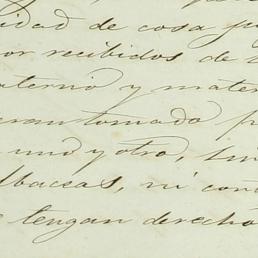 idad de cosa ju
or recibidos de
aterno y mater
eran tomado p
uno y otro,
lbaceas, ni con
e tengan derecho